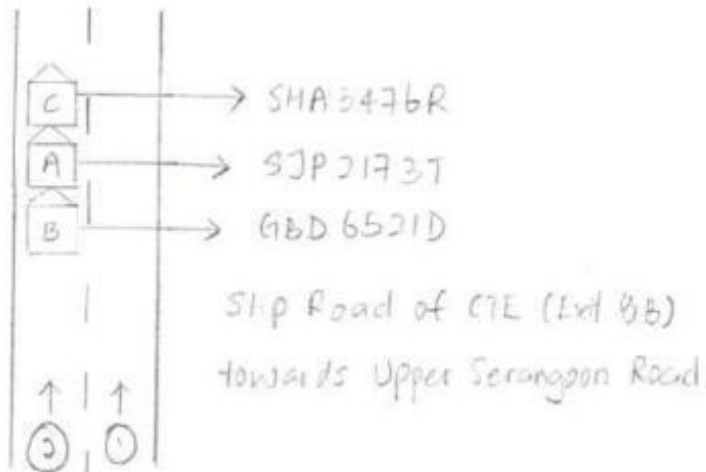 C → SHA3476R
A → SJP2173T
B → GBD6521D
Slip Road of CTE (Exit 8B)
towards Upper Serangoon Road
2 1